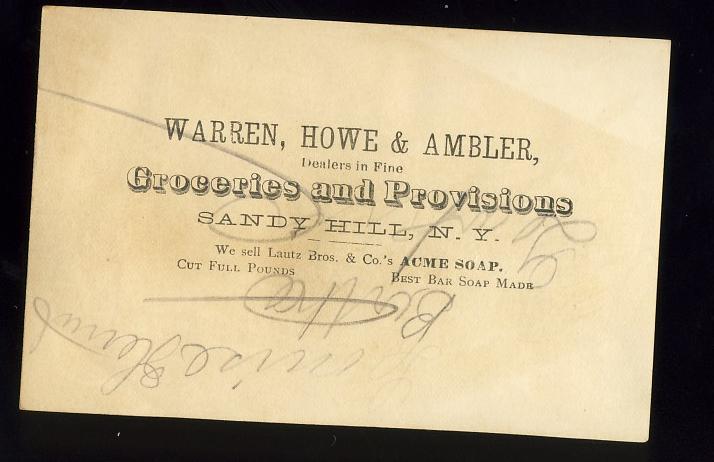 WARREN, HOWE & AMBLER,
Dealers in Fine
Groceries and Provisions
SANDY HILL, N. Y.
We sell Lautz Bros. & Co.'s ACME SOAP.
CUT FULL POUNDS BEST BAR SOAP MADE
Bertha